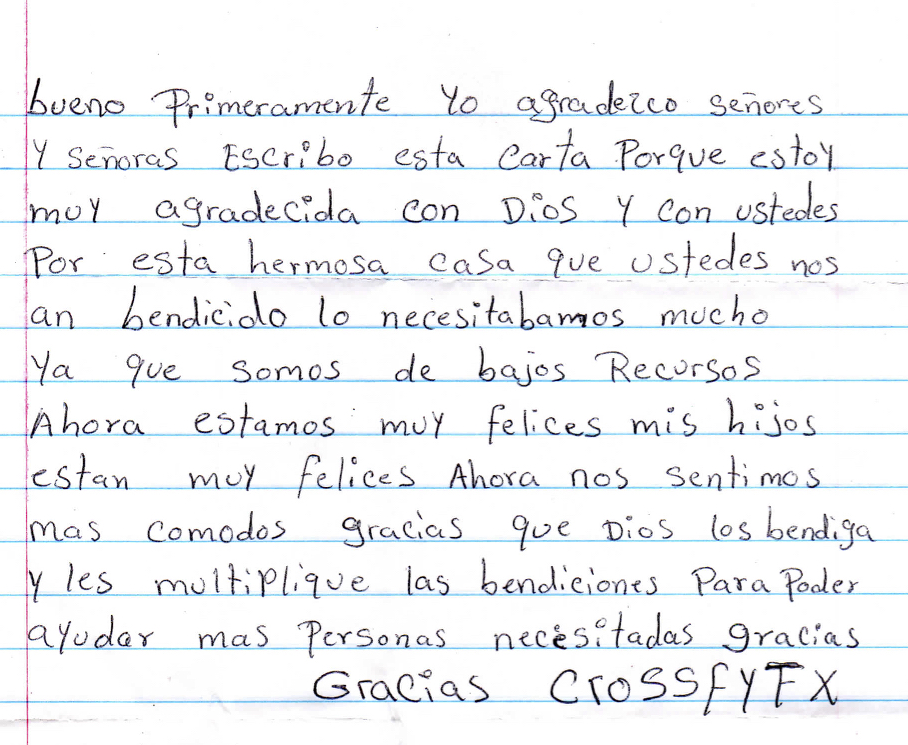 bueno Primeramente Yo agradezco señores
Y Señoras Escribo esta Carta Porque estoy
muy agradecida con Dios Y Con ustedes
Por esta hermosa casa que ustedes nos
an bendicido lo necesitabamos mucho
Ya que somos de bajos Recursos
Ahora estamos muy felices mis hijos
estan muy felices Ahora nos sentimos
mas comodos gracias que Dios los bendiga
y les multiplique las bendiciones Para Poder
ayudar mas Personas necesitadas gracias
Gracias CrossfYTX